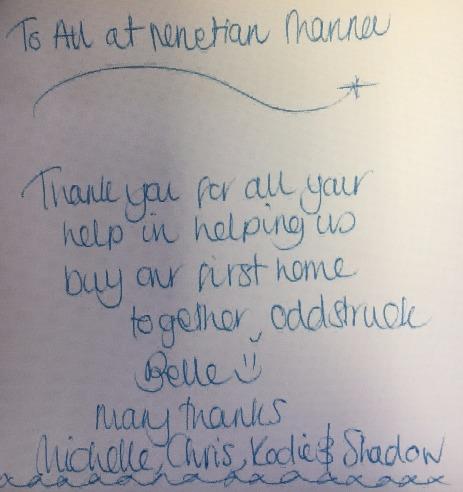 To All at Venetian Manner
Thank you for all your
help in helping us
buy our first home
together, oddstruck
Belle
Many thanks
Michelle, Chris, Kodie & Shadow